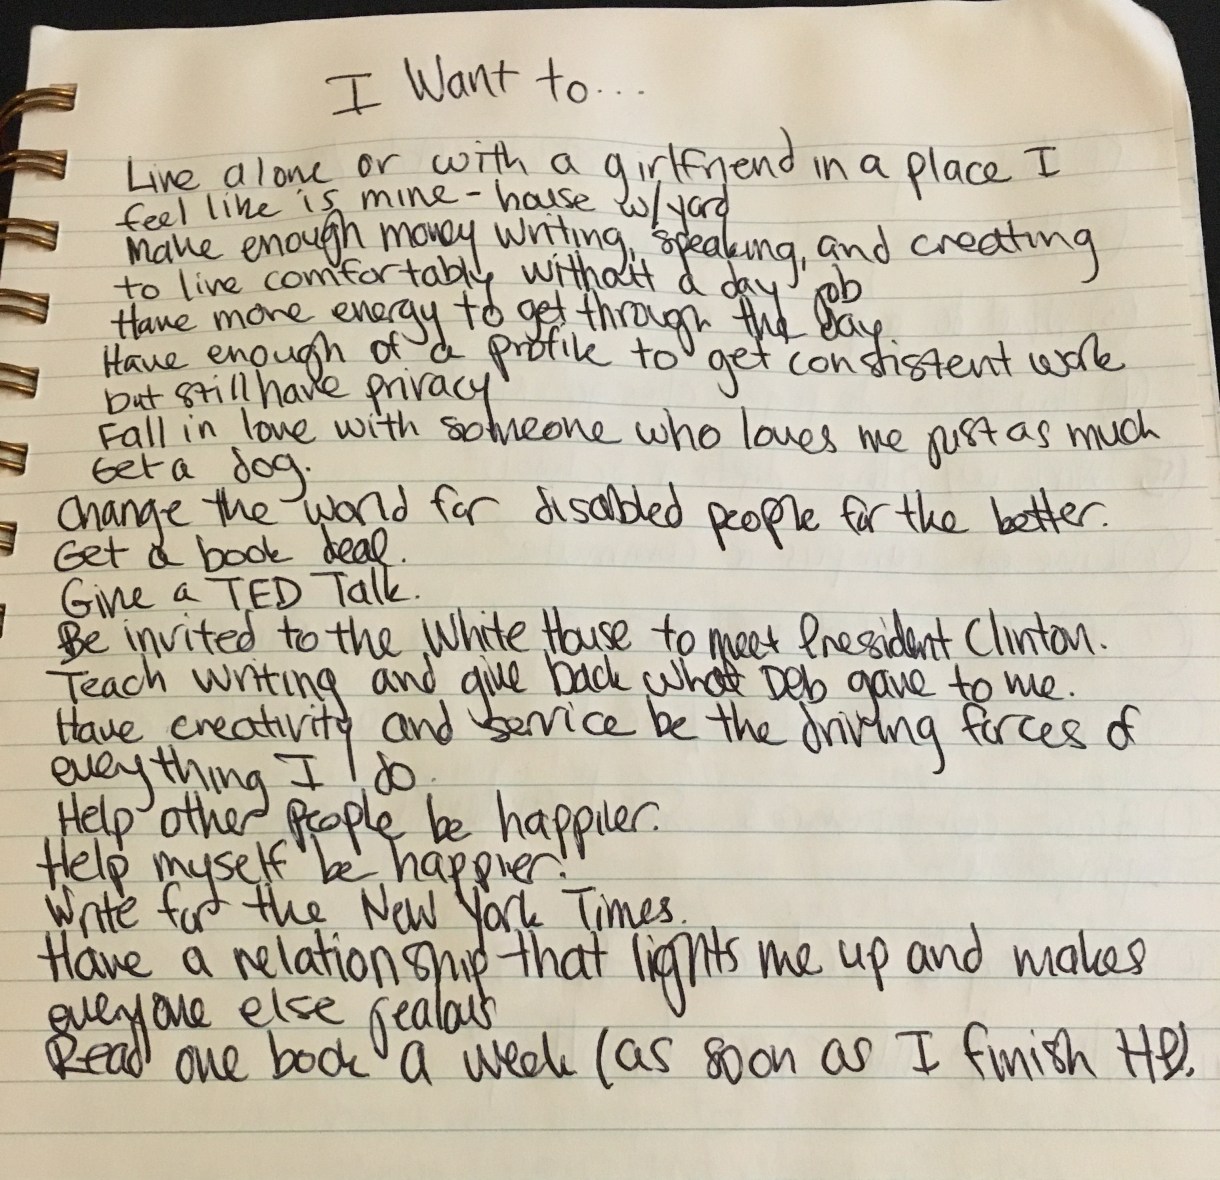 I Want to...
Live alone or with a girlfriend in a place I
feel like is mine - house w/yard
Make enough money writing, speaking, and creating
to live comfortably without a day job
Have more energy to get through the day
Have enough of a profile to get consistent work
but still have privacy
Fall in love with someone who loves me just as much
Get a dog.
Change the world for disabled people for the better.
Get a book deal.
Give a TED Talk.
Be invited to the White House to meet President Clinton.
Teach writing and give back what Deb gave to me.
Have creativity and service be the driving forces of
everything I do.
Help other people be happier.
Help myself be happier!
Write for the New York Times.
Have a relationship that lights me up and makes
everyone else jealous
Read one book a week (as soon as I finish HP).